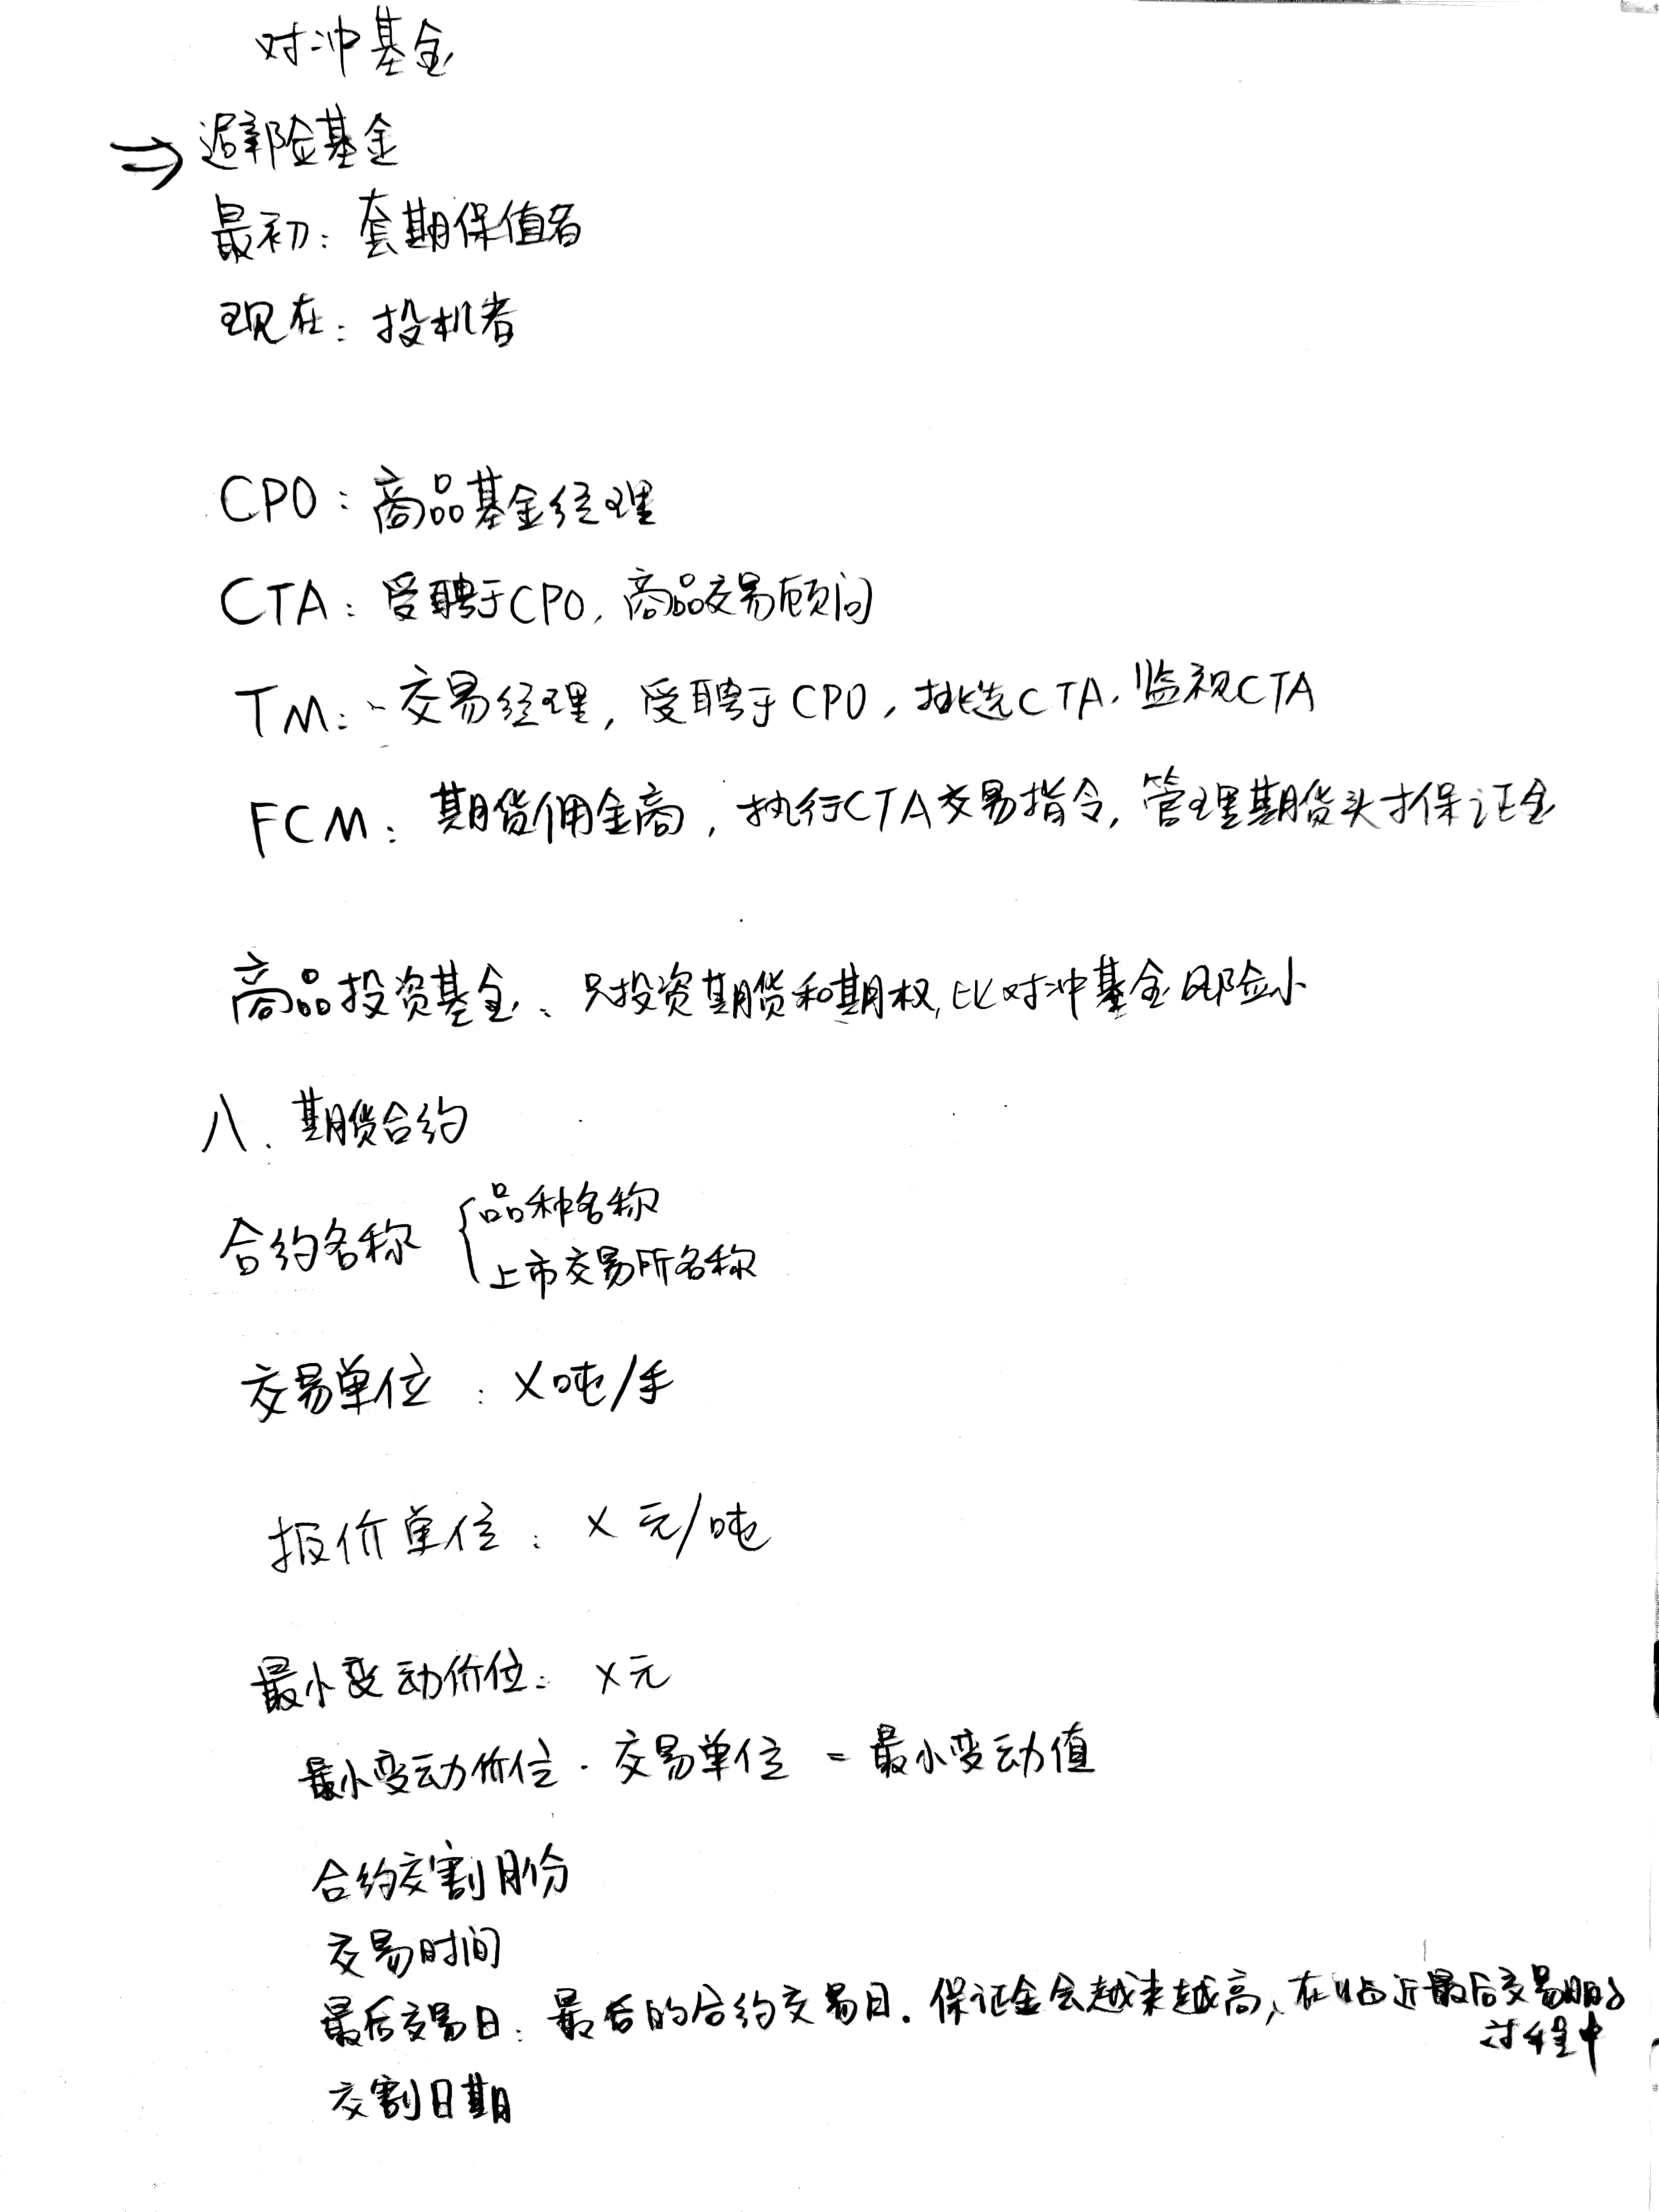 对冲基金
⇒避险基金
最初：套期保值者
现在：投机者
CPO：商品基金经理
CTA：受聘于CPO，商品交易顾问
TM：交易经理，受聘于CPO，挑选CTA，监视CTA
FCM：期货佣金商，执行CTA交易指令，管理期货头寸保证金
商品投资基金、只投资期货和期权，比对冲基金风险小
八、期货合约
合约名称 { 品种名称
上市交易所名称
交易单位：X吨/手
报价单位：X元/吨
最小变动价位：X元
最小变动价位·交易单位 = 最小变动值
合约交割月份
交易时间
最后交易日：最后的合约交易日.保证金会越来越高，在临近最后交易日的
过程中
交割日期